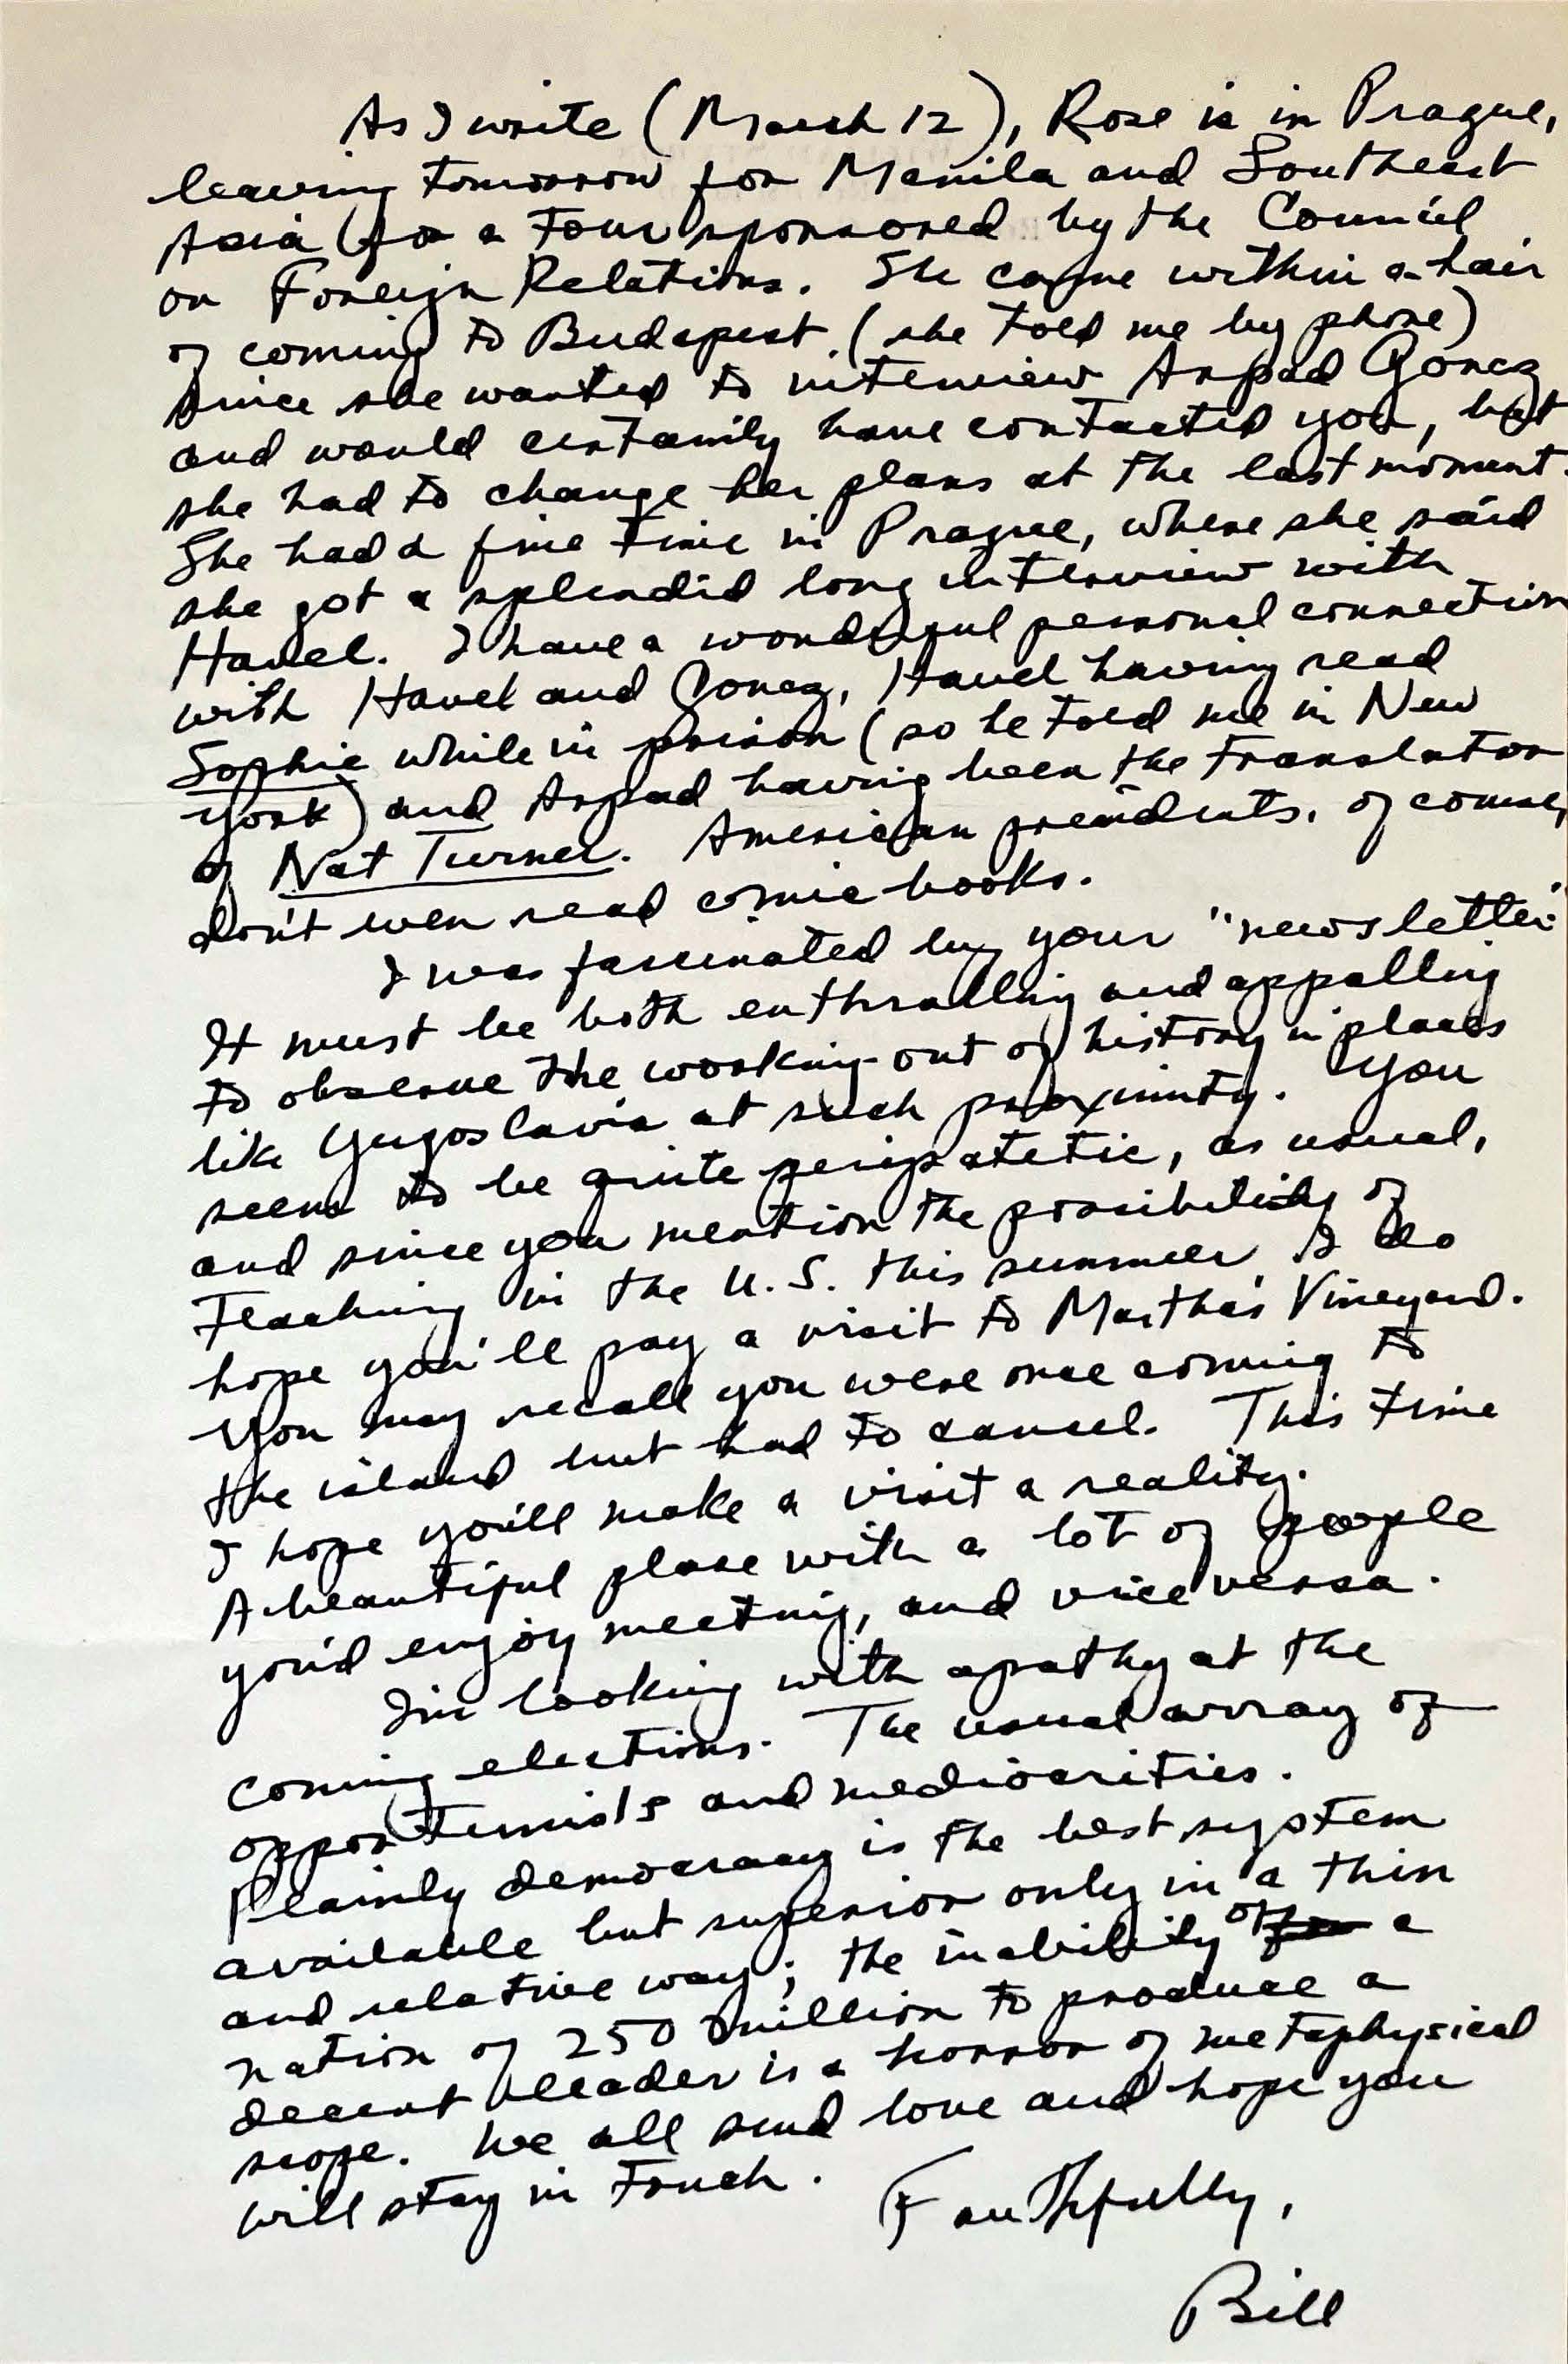 As I write (March 12), Rose is in Prague,
leaving tomorrow for Manila and Southeast
Asia for a tour sponsored by the Council
on Foreign Relations. She came within a hair
of coming to Budapest (she told me by phone)
since she wanted to interview Arpad Goncz
and would certainly have contacted you, but
she had to change her plans at the last moment.
She had a fine time in Prague, where she said
she got a splendid long interview with
Havel. I have a wonderful personal connection
with Havel and Goncz, Havel having read
Sophie while in prison (so he told me in New
York) and Arpad having been the translator
of Nat Turner. American presidents, of course,
don't even read comic books.
I was fascinated by your "newsletter."
It must be both enthralling and appalling
to observe the working-out of history in places
like Yugoslavia at such proximity. You
seem to be quite peripatetic, as usual,
and since you mention the possibility of
teaching in the U.S. this summer I do
hope you'll pay a visit to Martha's Vineyard.
You may recall you were once coming to
the island but had to cancel. This time
I hope you'll make a visit a reality.
A beautiful place with a lot of people
you'd enjoy meeting, and vice versa.
I'm looking with apathy at the
coming elections. The usual array of
opportunists and mediocrities.
Plainly democracy is the best system
available but superior only in a thin
and relative way; the inability of a
nation of 250 million to produce a
decent leader is a horror of metaphysical
scope. We all send love and hope you
will stay in touch.
Faithfully,
Bill